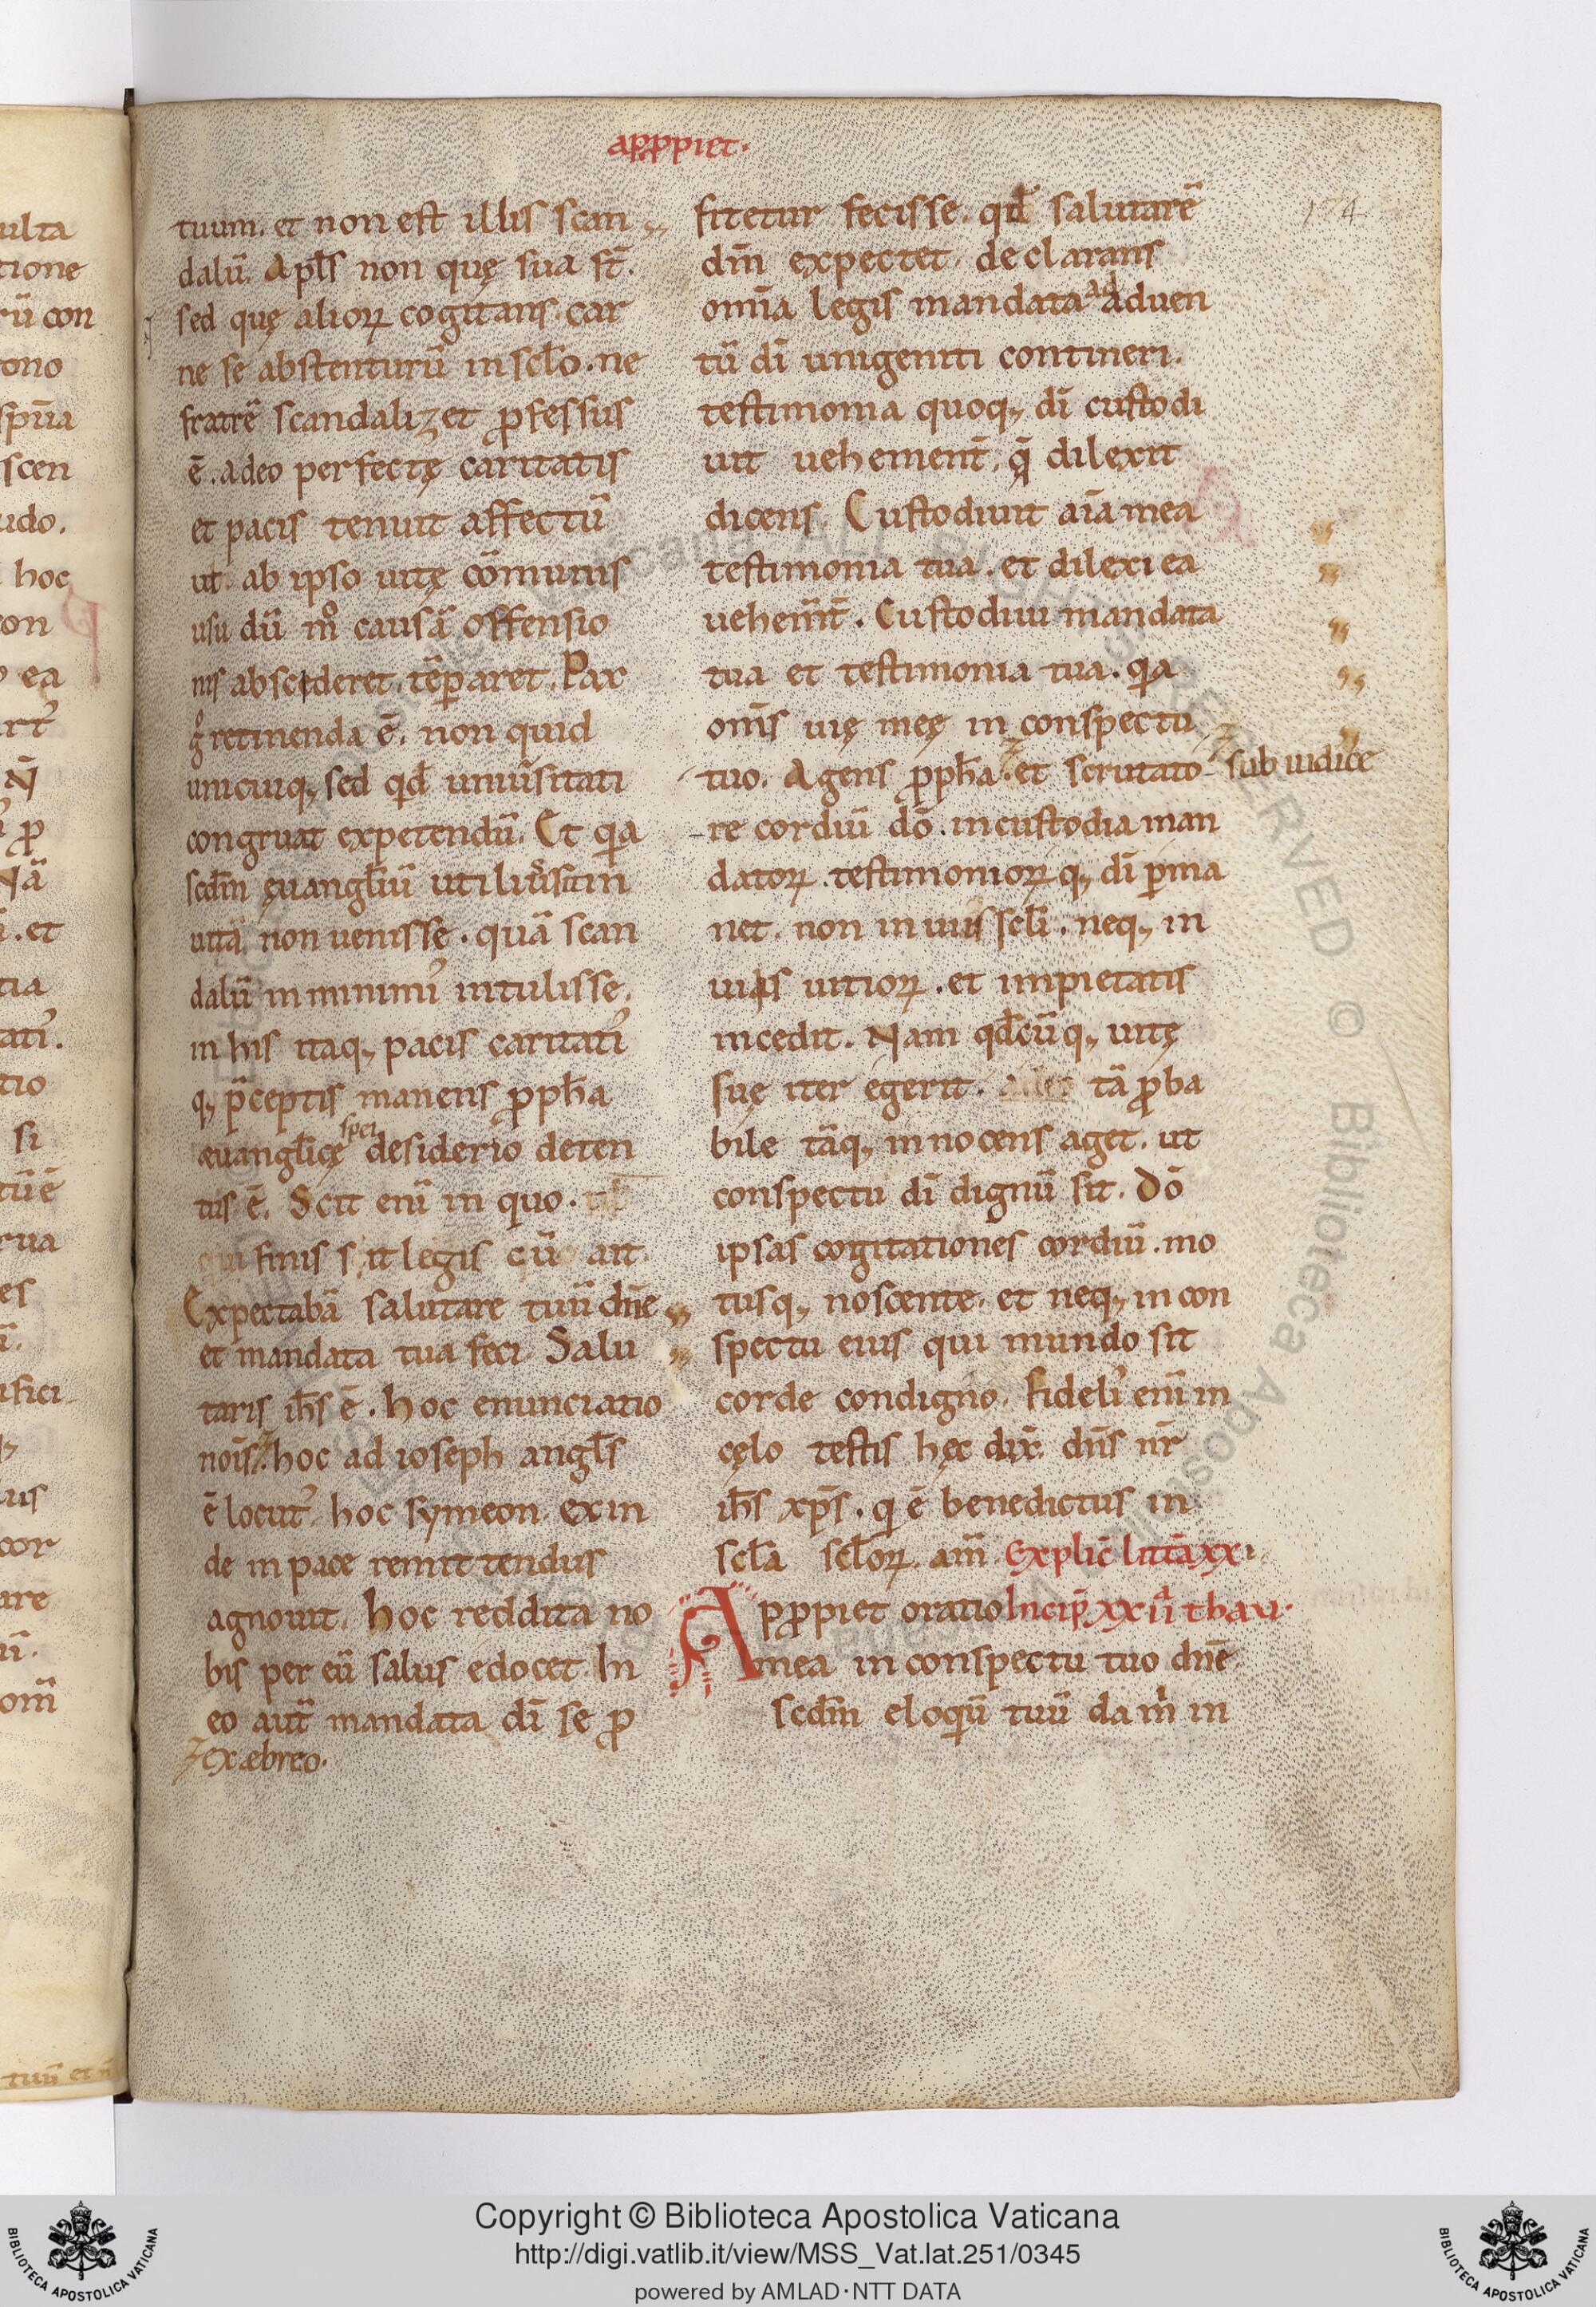 apꝓpiet.
174
tuum. et non est illis scan
dalū. Apl̄s non quę sua st̄.
sed quę alioꝝ cogitans. car
ne se abstenturū in scl̄o. ne
fratrē scandalizet ꝓfessus
ē. adeo perfectę caritatis
et pacis tenuit affectū
ut ab ipso uitę cōmunis
usu dū m̊ causā offensio
nis abscideret. tēꝑaret. Pax
g̊ retinenda ē. non quid
unicuiq; sed qd̄ uniūsitati
congruat expetendū. Et qia
scd̄m ęuangl̄iū utiliūs sit in
uitā non uenisse. quā scan
dalū in minimı᾽ intulisse.
in his itaq; pacis caritatı᾽
q; p̄ceptis manens ꝓph̄a
euangl̄icę spei desiderio deten
tus ē. Scit enī in quo.
qui finis sit legis cū ait
Expectabā salutare tuū dn̄e
et mandata tua feci. Salu
taris ih̄s ē. hoc enunciatio
nois̄. hoc ad ioseph angl̄s
ē locut᾽. hoc symeon. exin
de in pace remittendus
agnouit. hoc reddita no
bis per eū salus edocet. In
eo aut̄ mandata dī se ꝓ
ex æbreo.
fitetur fecisse. qd̄ salutarē
dm̄ expectet. declarans
omīa legis mandata ad aduen
tū dī unigeniti contineri.
testimonia quoq; dī custodi
uit uehement̄. q̄ dilexit
dicens. Custodiuit aīa mea
testimonia tua. et dilexi ea
uehem̄t̄. Custodiui mandata
tua et testimonia tua. qia
om̄s uię meę in conspectu
tuo. Agens ꝓph̄a. et scrutato
sub iudice
re cordiū dō. in custodia man
datoꝝ. testimonioꝝq; dī ꝑma
net. non in uiis scl̄i. neq; in
uiis uitioꝝ. et impietatis
incedit. Nam qd̄cūq; uitę
suę iter egerit. tā ꝓba
bile tāq; innocens aget. ut
conspectu dī dignū sit. dō
ipsas cogitationes cordiū. mo
tusq; noscente. et neq; in con
spectu eius qui mundo sit
corde condigno. fidelı᾽ enī in
cęlo testis hęc dix̄. dn̄s nr̄
ih̄s xp̄s. q̇ ē benedictus in
scl̄a scl̄oꝝ. am̄. Explic̄ litt̄a xxi.
Apꝓpiet oratio Incip̄ xxii ͣ thau.
mea in conspectu tuo dn̄e
scd̄m eloqiū tuū da m̍ in
Copyright © Biblioteca Apostolica Vaticana
http://digi.vatlib.it/view/MSS_Vat.lat.251/0345
powered by AMLAD·NTT DATA